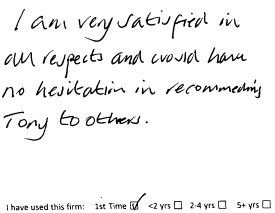 I am very satisfied in
all respects and would have
no hesitation in recommending
Tony to others.
I have used this firm: 1st Time ☑ <2 yrs ☐ 2-4 yrs ☐ 5+ yrs ☐